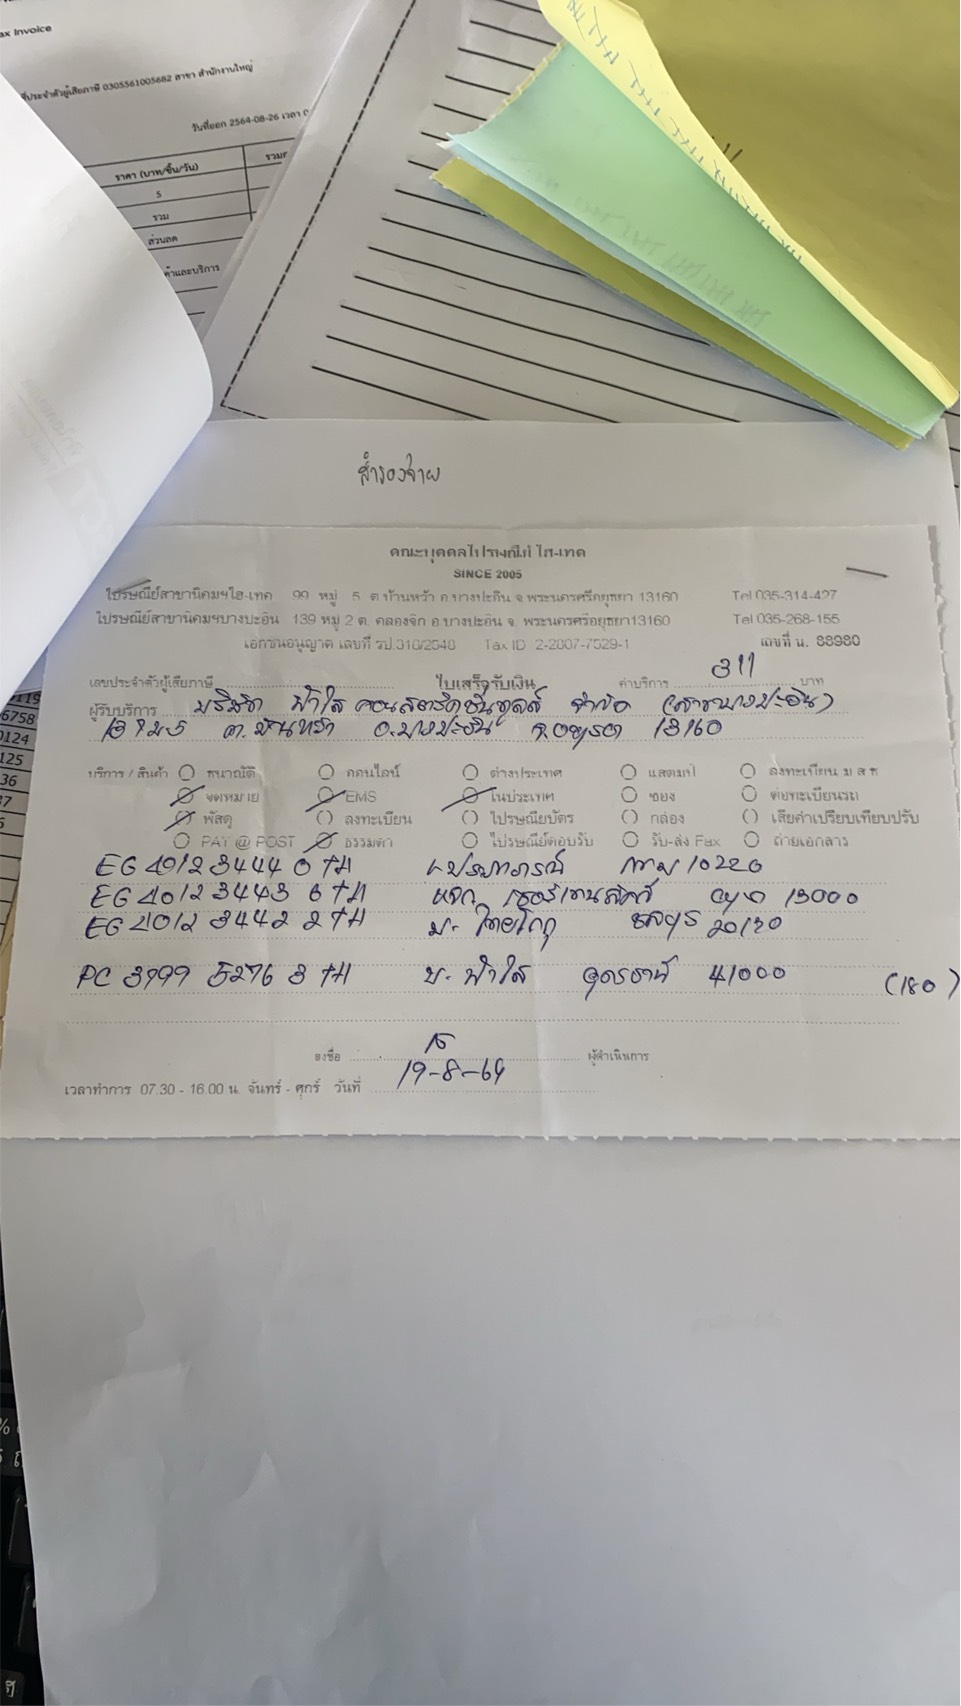 ax Invoice
ที่ประจำตัวผู้เสียภาษี 0305561005682 สาขา สำนักงานใหญ่
วันที่ออก 2564-08-26 เวลา
ราคา (บาท/ชิ้น/วัน)
5
รวม
ส่วนลด
สำรองจ่าย
คณะบุคคลไปรษณีย์ ไฮ-เทค
SINCE 2005
ไปรษณีย์สาขานิคมฯไฮ-เทค 99 หมู่ 5 ต.บ้านหว้า อ.บางปะอิน จ.พระนครศรีอยุธยา 13160 Tel 035-314-427
ไปรษณีย์สาขานิคมฯบางปะอิน 139 หมู่ 2 ต. คลองจิก อ.บางปะอิน จ. พระนครศรีอยุธยา13160 Tel 035-268-155
เอกชนอนุญาต เลขที่ รป.310/2548 Tax ID 2-2007-7529-1 เลขที่ น. 88980
เลขประจำตัวผู้เสียภาษี ใบเสร็จรับเงิน ค่าบริการ 311 บาท
ผู้รับบริการ บริษัท ฟ้าใส คอนสตรัคชั่นทูลส์ จำกัด (สาขาบางปะอิน)
ม.5 ต.บ้านหว้า อ.บางปะอิน จ.อยุธยา 13160
บริการ / สินค้า ธนาณัติ ออนไลน์ ต่างประเทศ แสตมป์ ลงทะเบียน ม ส ท
จดหมาย EMS ในประเทศ ซอง ต่อทะเบียนรถ
พัสดุ ลงทะเบียน ไปรษณียบัตร กล่อง เสียค่าเปรียบเทียบปรับ
PAY @ POST ธรรมดา ไปรษณีย์ตอบรับ รับ-ส่ง Fax ถ่ายเอกสาร
EG 4012 3444 0 TH กทม 10220
EG 4012 3443 6 TH หจก. อยุธยา 13000
EG 4012 3442 2 TH บ. ชลบุรี 20130
PC 3799 5276 3 TH บ. ฟ้าใส อุดรธานี 41000 (180)
ลงชื่อ ผู้ดำเนินการ
เวลาทำการ 07.30 - 16.00 น. จันทร์ - ศุกร์ วันที่ 19-8-64